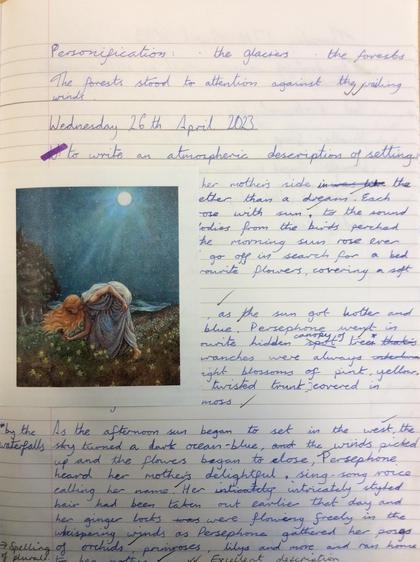 Personification: · the glaciers · the forests
The forests stood to attention against the wailing
winds.
Wednesday 26th April 2023
to write an atmospheric description of setting
her mother's side in was like the
ether than a dream. Each
rose with sun, to the sound
lodies from the birds perched
he morning sun rose ever
go off in search for a bed
ourite flowers, covering a soft
, as the sun got hotter and
blue, Persephone went in
canopy of
ourite hidden spot trees that is
ranches were always
ight blossoms of pink, yellow,
twisted trunk covered in
moss
*by the
waterfalls
As the afternoon sun began to set in the west, the
sky turned a dark ocean-blue, and the winds picked
up and the flowers began to close, Persephone
heard her mother's delightful, sing-song voice
calling her name. Her intricately intricately styled
hair had been taken out earlier that day and
her ginger locks was were flowing freely in the
whispering winds as Persephone gathered her posys
→ Spelling
of plurals
of orchids, primroses, lilys and more and ran home
to her mother.
Excellent description